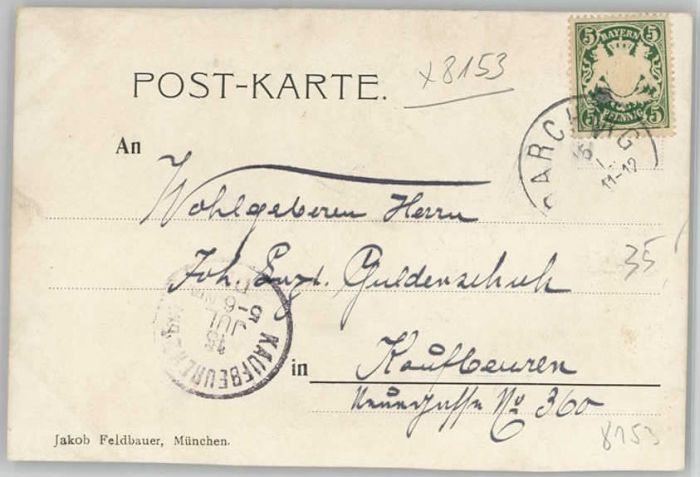 x8153
5 BAYERN 5
5 PFENNIG 5
POST-KARTE.
PARCHING
11-12
An
Wohlgeboren Herrn
Joh. Guldenschuh
35
KAUFBEUREN
15
JUL
5-6
in Kaufbeuren
No 360
8153
Jakob Feldbauer, München.